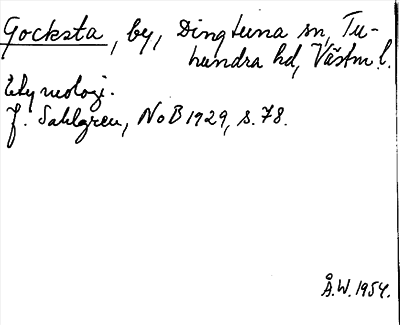 Gocksta, by, Dingtuna sn, Tu-
hundra hd, Västm l.
Etymologi.
J. Sahlgren, NoB 1929, s. 78.
Å.W. 1954.